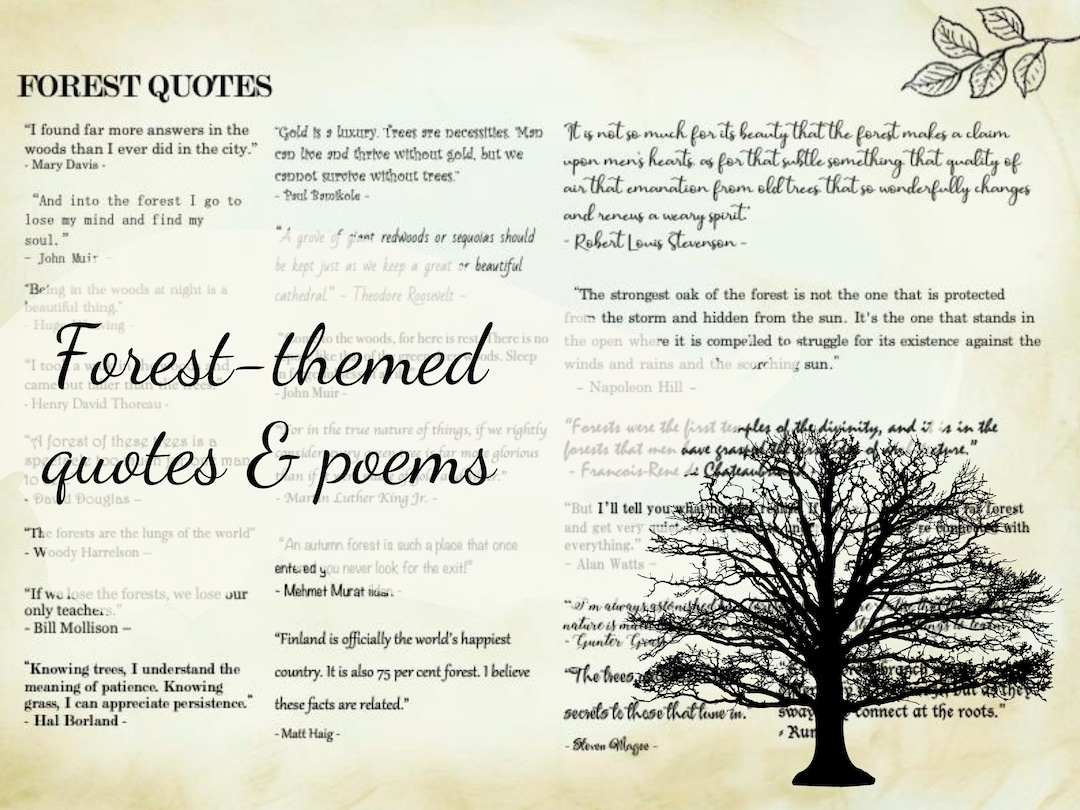 FOREST QUOTES
“I found far more answers in the
woods than I ever did in the city.”
- Mary Davis -
“And into the forest I go to
lose my mind and find my
soul.”
– John Muir –
“Being in the woods at night is a
beautiful thing.”
- Hugo Weaving -
“I took a walk in the woods and
came out taller than the trees.”
- Henry David Thoreau -
“A forest of these trees is a
man
- David Douglas –
“The forests are the lungs of the world”
- Woody Harrelson –
“If we lose the forests, we lose our
only teachers.”
- Bill Mollison –
“Knowing trees, I understand the
meaning of patience. Knowing
grass, I can appreciate persistence.”
- Hal Borland -
“Gold is a luxury. Trees are necessities. Man
can live and thrive without gold, but we
cannot survive without trees.”
- Paul Bamikole -
“A grove of giant redwoods or sequoias should
be kept just as we keep a great or beautiful
cathedral.” – Theodore Roosevelt –
to the woods, for here is rest. There is no
like the of the green deep woods. Sleep
- John Muir -
for in the true nature of things, if we rightly
consider, every green tree is far more glorious
than if
- Martin Luther King Jr. -
“An autumn forest is such a place that once
entered you never look for the exit!”
- Mehmet Murat ildan -
“Finland is officially the world’s happiest
country. It is also 75 per cent forest. I believe
these facts are related.”
- Matt Haig -
Forest-themed
quotes & poems
“It is not so much for its beauty that the forest makes a claim
upon men’s hearts, as for that subtle something, that quality of
air that emanation from old trees, that so wonderfully changes
and renews a weary spirit.”
- Robert Louis Stevenson -
“The strongest oak of the forest is not the one that is protected
from the storm and hidden from the sun. It's the one that stands in
the open where it is compelled to struggle for its existence against the
winds and rains and the scorching sun.”
– Napoleon Hill –
“Forests were the first temples of the divinity, and it is in the
forests that men have grasped the first idea of architecture.”
- Francois-Rene de Chateaubriand
“But I’ll tell you what
forest
and get very quiet
connected with
everything.”
– Alan Watts –
“I’m always astonished
nature is
to learn.
- Gunter Grass
“The trees
secrets to those that tune in.
- Steven Magee -
branch
but as they
sway connect at the roots.”
- Rumi